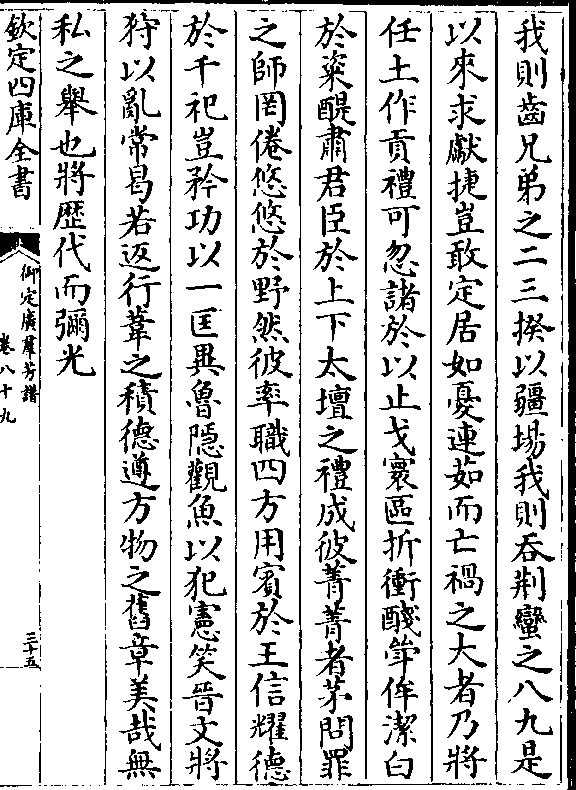 我則齒兄弟之二三揆以疆埸我則吞荆蠻之八九是
以來求獻捷豈敢定居如憂連茹而亡禍之大者乃將
任土作貢禮可忽諸於以止戈寰區折衝醆斚侔潔白
於粢醍肅君臣於上下太壇之禮成彼菁菁者茅問罪
之師罔倦悠悠於野然彼率職四方用賓於王信耀德
於千祀豈矜功以一匡異魯隱觀魚以犯憲笑晉文將
狩以亂常曷若返行葦之積德遵方物之舊章美哉無
私之舉也將歴代而彌光
欽定四庫全書
御定廣羣芳譜
卷八十九
三十五